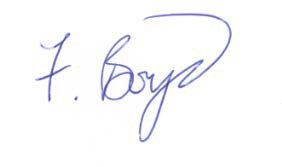 F. Boyd